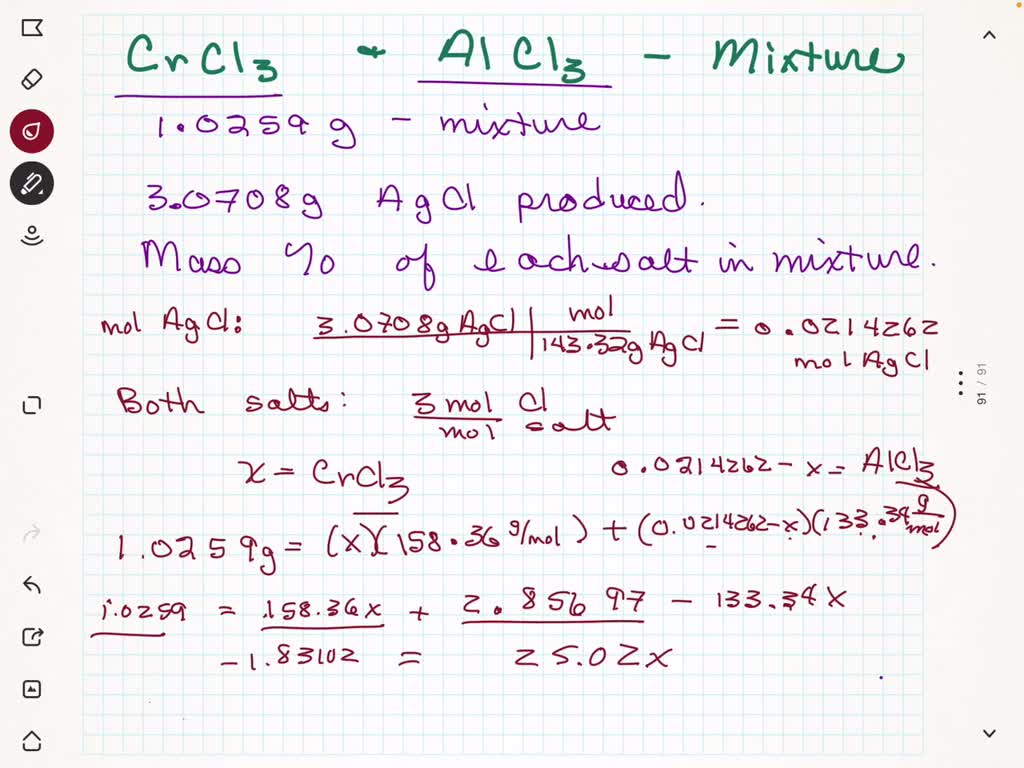 CrCl3 + AlCl3 - Mixture
1.0259 g - mixture
3.0708g AgCl produced.
Mass % of each salt in mixture.
mol AgCl: 3.0708g AgCl | mol / 143.32g AgCl = 0.0214262 mol AgCl
Both salts: 3 mol Cl / mol salt
x = CrCl3 0.0214262 - x = AlCl3
1.0259g = (x)(158.36 g/mol) + (0.0214262-x)(133.34 g/mol)
1.0259 = 158.36x + 2.85697 - 133.34x
-1.83102 = 25.02x
91 / 91